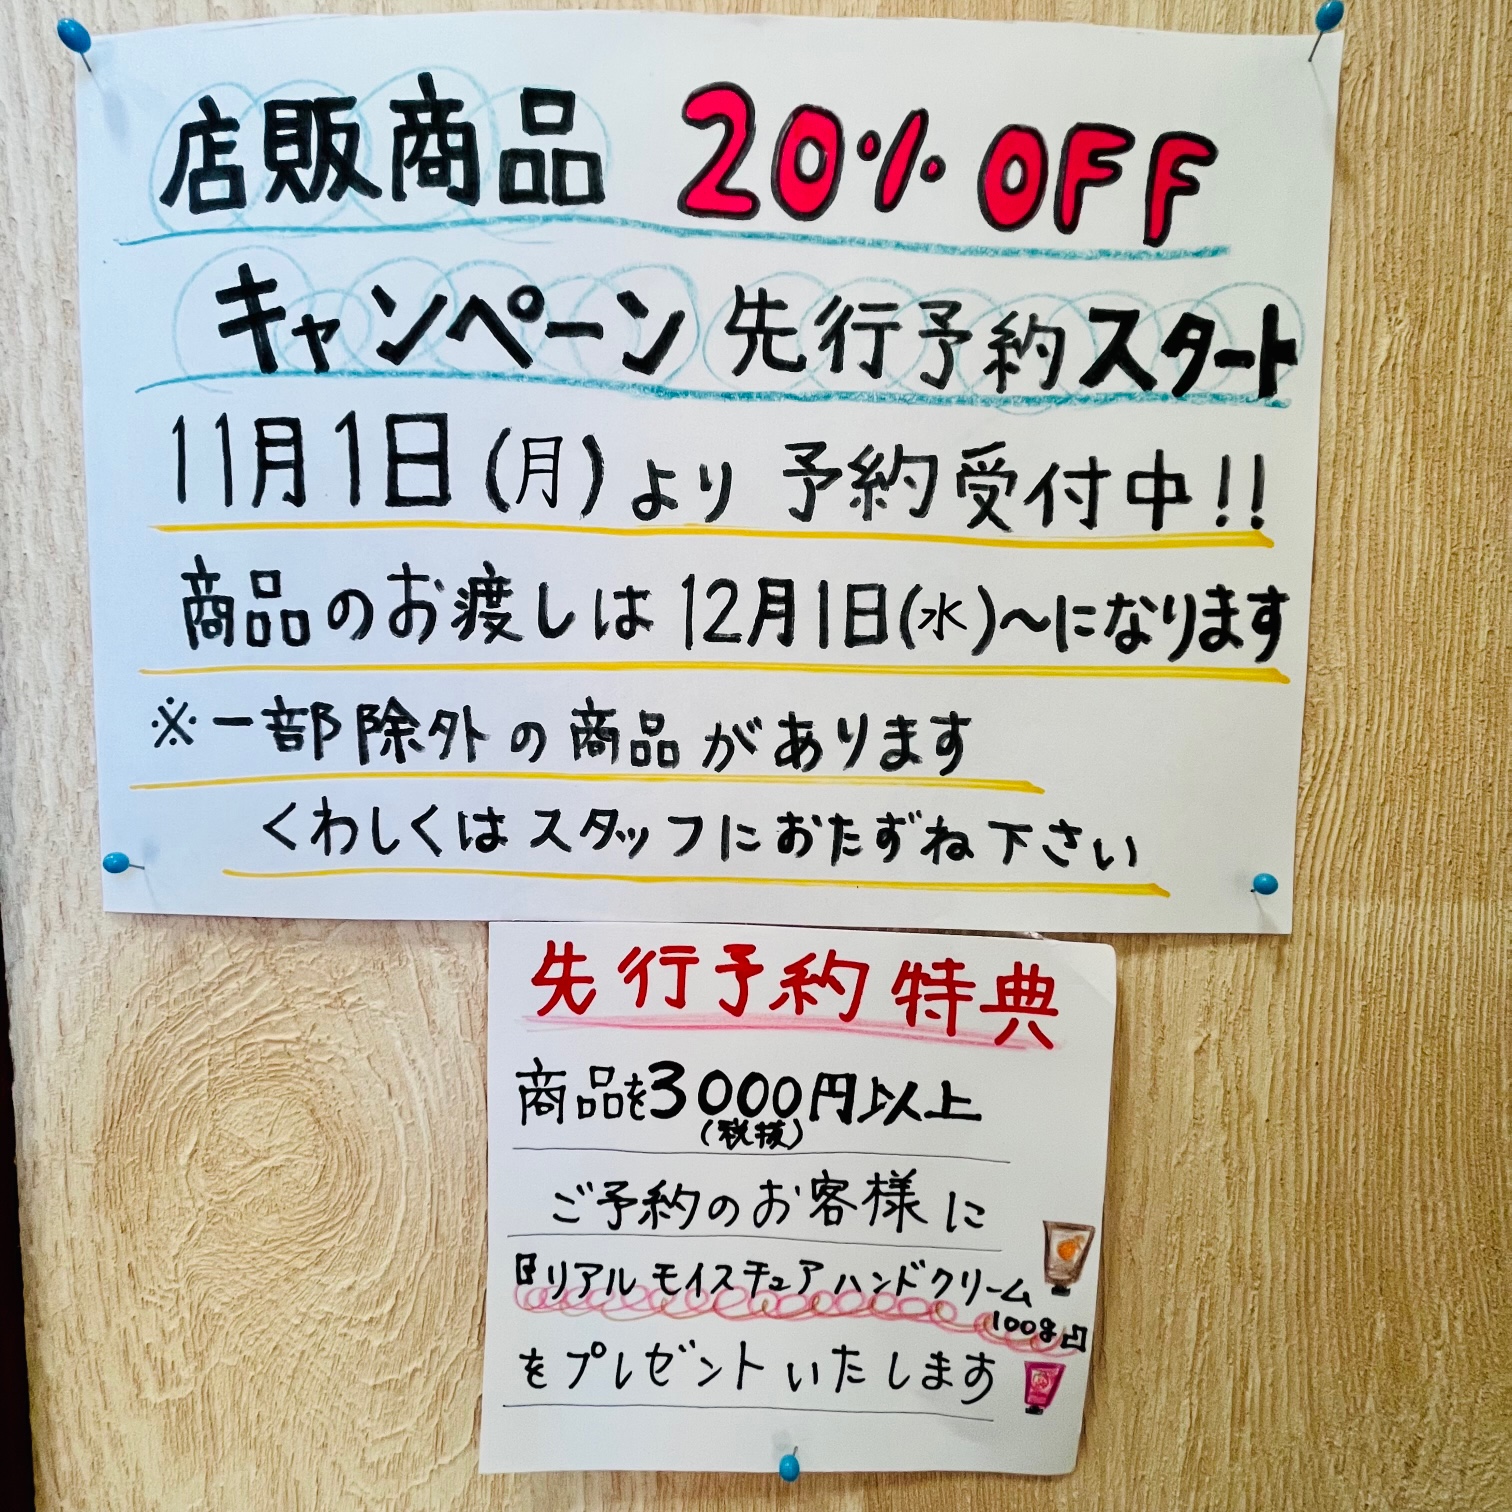 店販商品 20% OFF
キャンペーン 先行予約スタート
11月1日(月)より 予約受付中!!
商品のお渡しは12月1日(水)~になります
※一部除外の商品があります
くわしくはスタッフにおたずね下さい
先行予約特典
商品を3000円以上
(税抜)
ご予約のお客様に
『リアルモイスチュアハンドクリーム
100g』
をプレゼントいたします